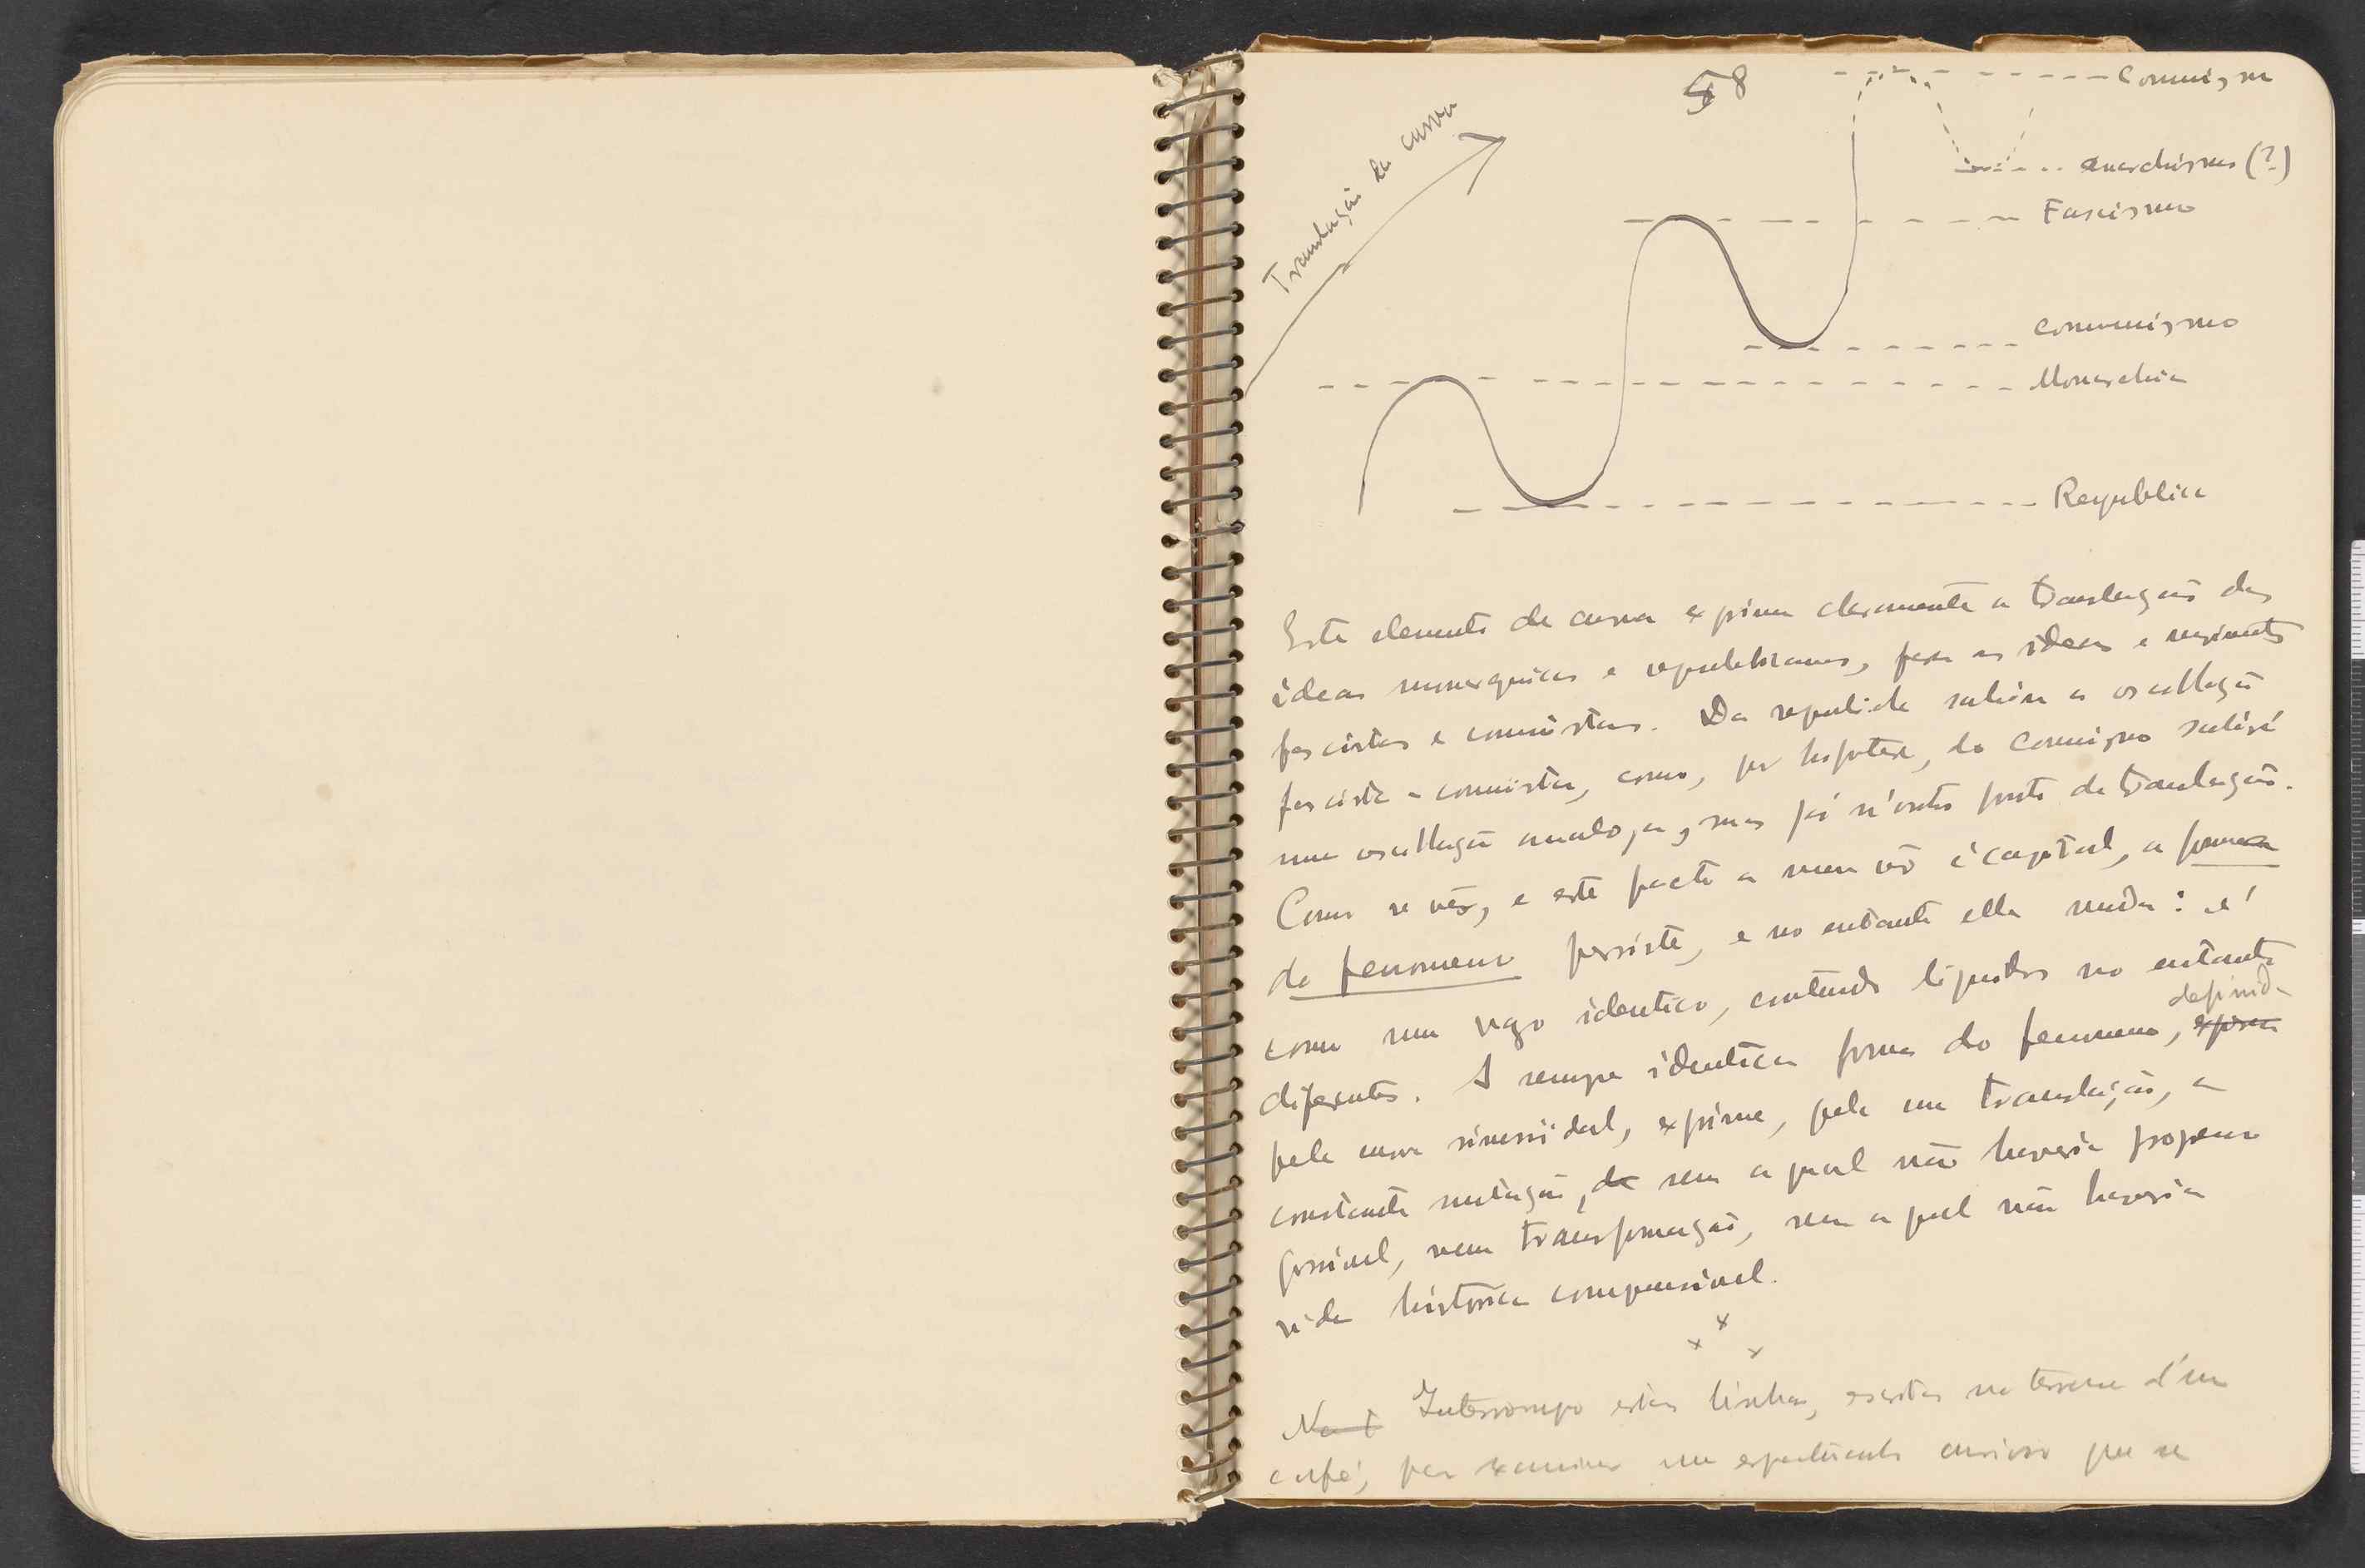 58
Comuismo
Translação da curva
anarchismo (?)
Fascismo
comuumismo
Monarchia
Republica
Este elemento de curva exprime claramente a translação das
ideas monarquicas e republicanas, para as ideas e
fascistas e comuistas. Da republica sahiu a oscillação
fascista-comuista, como, por hipotese, do comuismo sahirá
uma oscillação analoga, mas já n'outro ponto de translação.
Como se vê, e este facto a meu vêr é capital, a forma
do fenomeno persiste, e no entanto ella muda: é
como um vazo identico, contendo liquidos no entanto
diferentes. A sempre identica forma do fenomeno, definida
pela curva sinusoidal, exprime, pela sua translação, a
constante mutação, sem a qual não haveria progresso
possivel, nem transformação, sem a qual não haveria
vida historica compreensivel.
x x x
Interrompo estas linhas, escritas no terrasse d'um
café, para examinar um espectaculo curioso que se